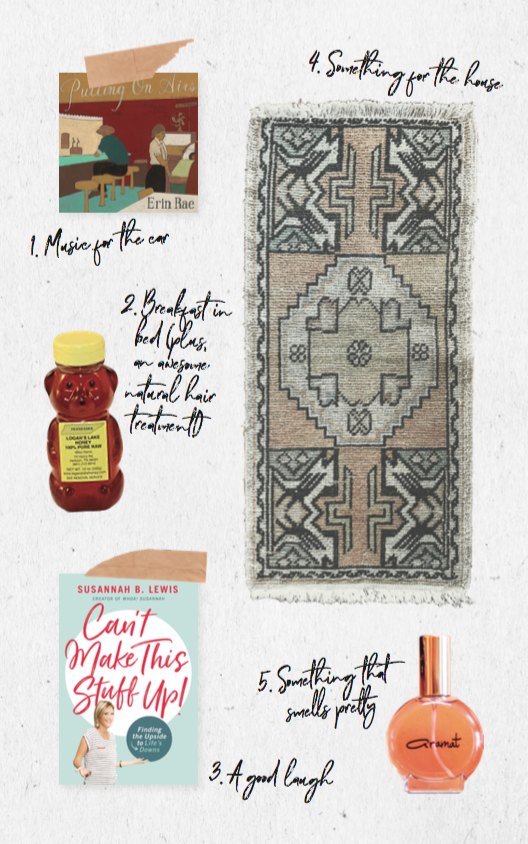 4. Something for the house
Putting On Airs
Erin Rae
1. Music for the car
2. Breakfast in
bed (plus,
an awesome
natural hair
treatment!)
LOGAN'S LAKE
HONEY
100% PURE RAW
SUSANNAH B. LEWIS
CREATOR OF WHOA! SUSANNAH
Can't
Make This
Stuff Up!
Finding
the Upside
to Life's
Downs
5. Something that
smells pretty
aramat
3. A good laugh